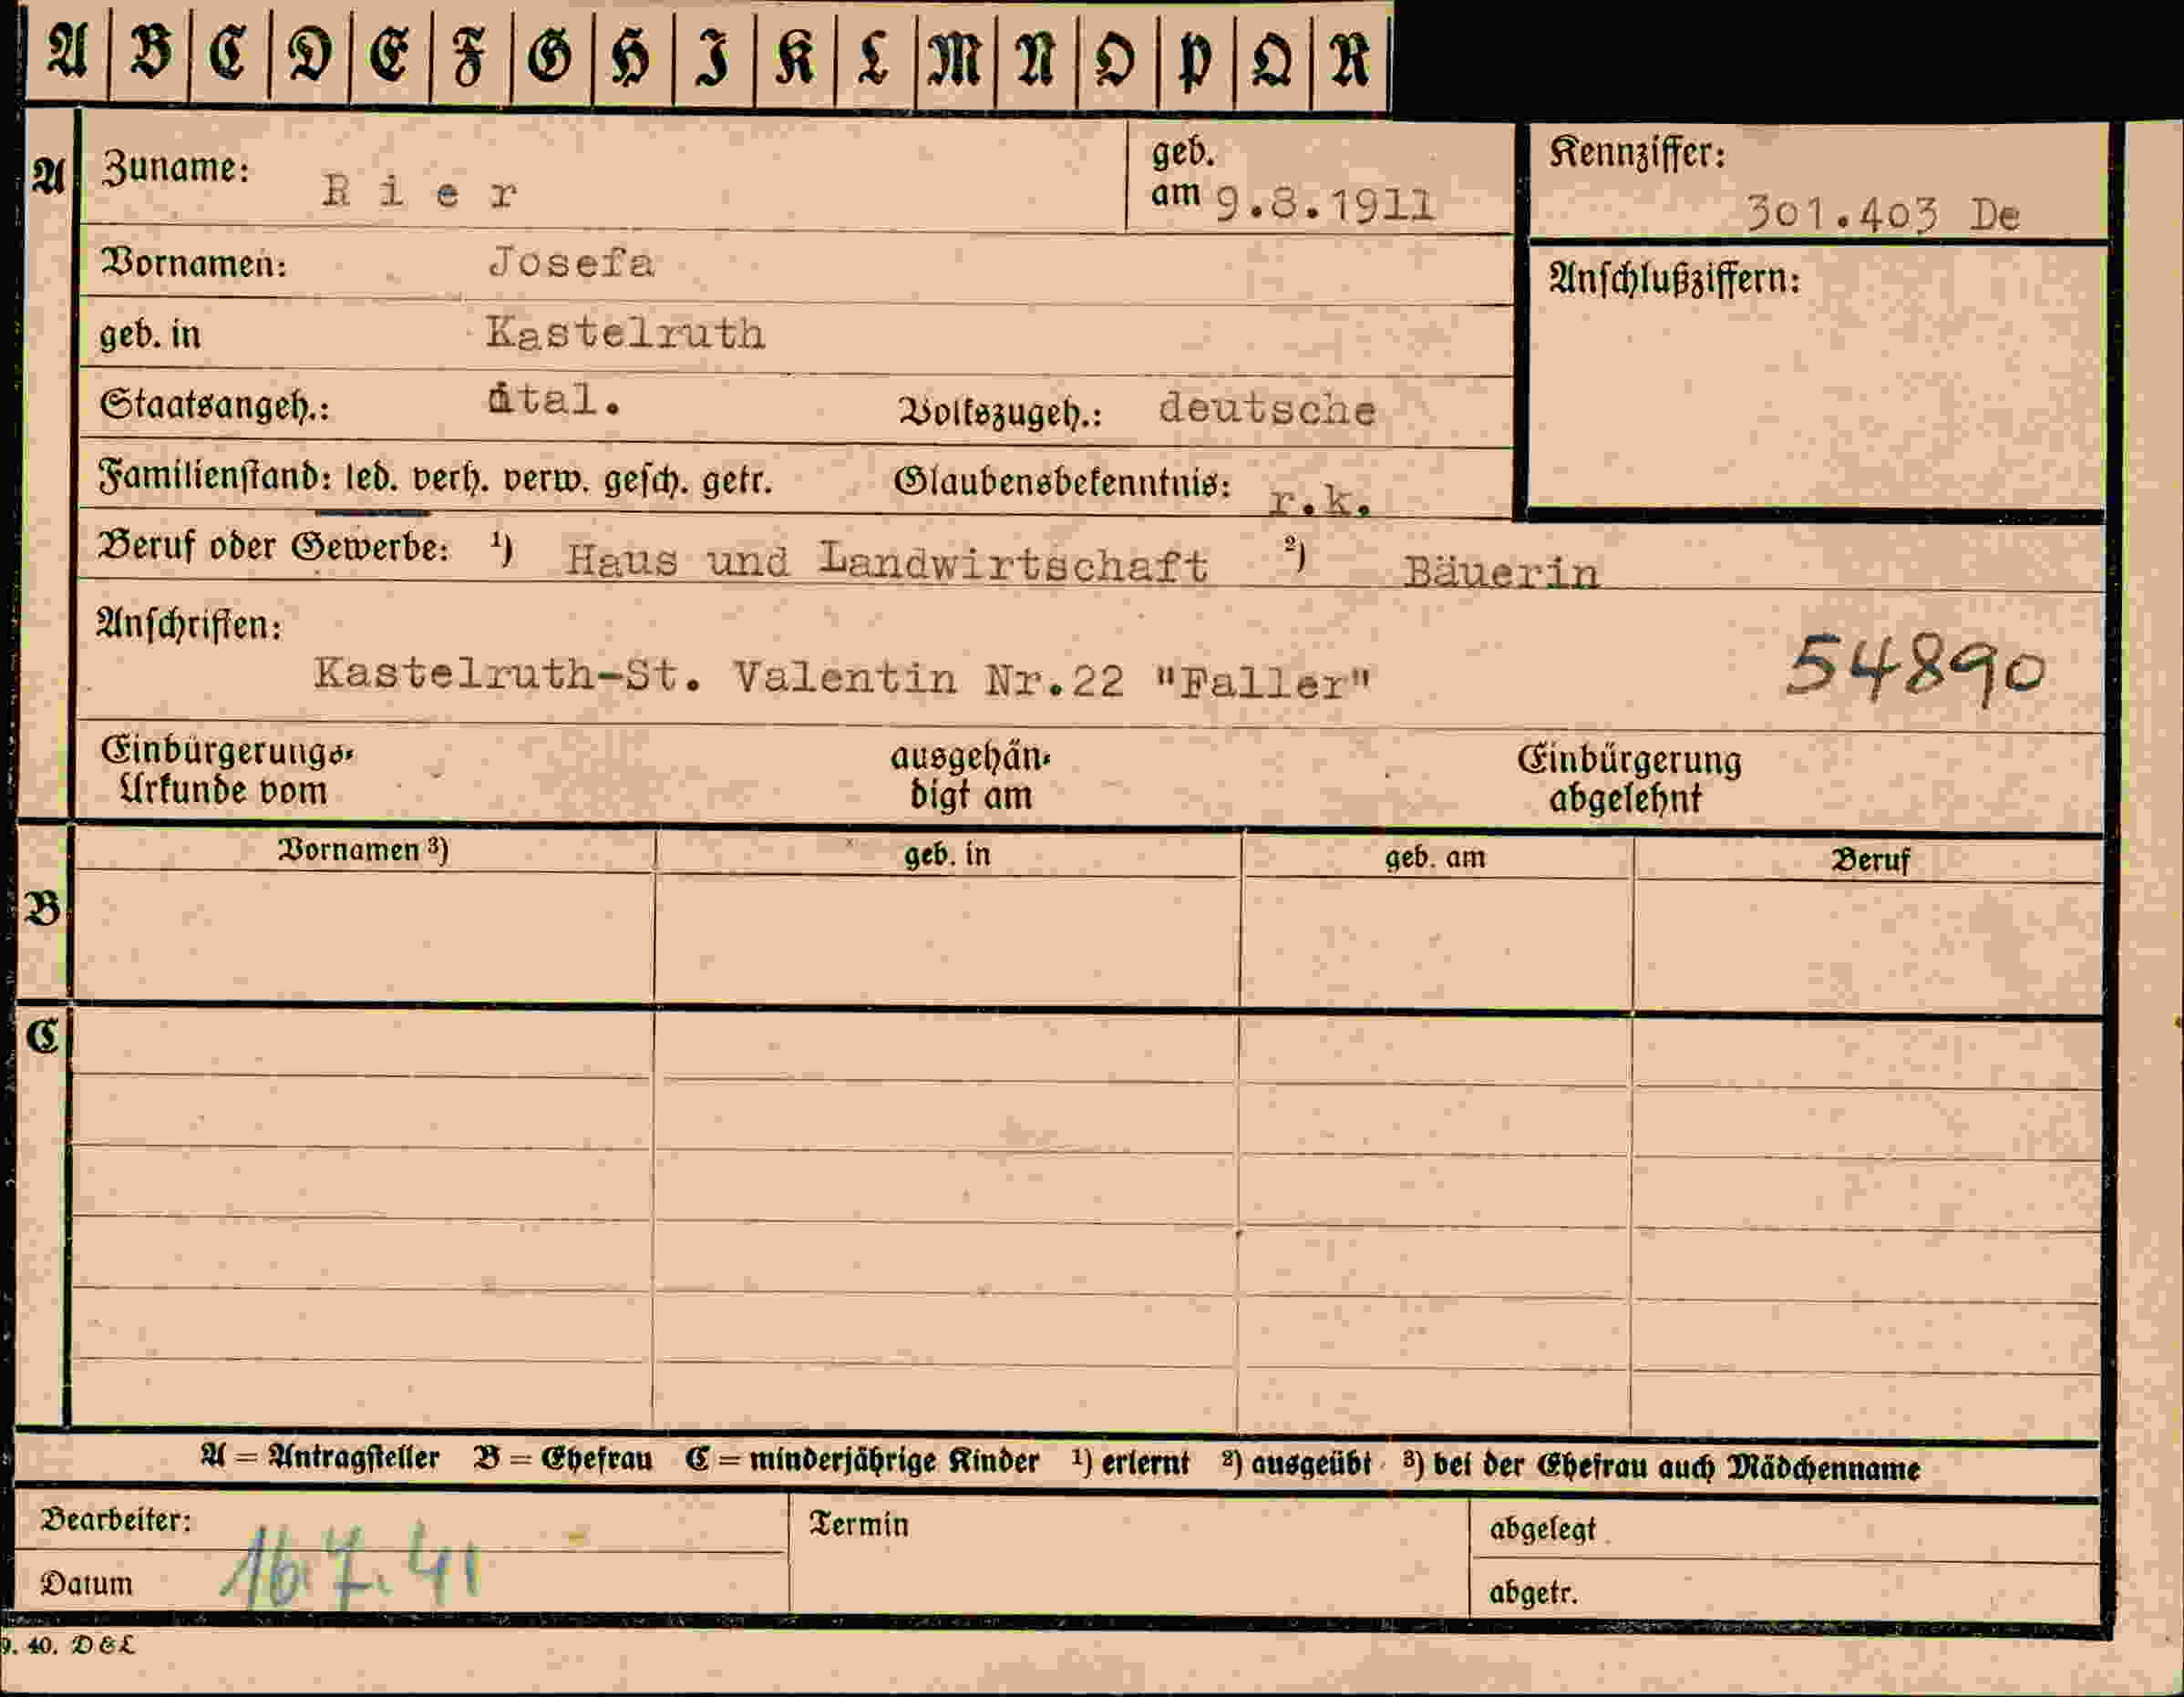 A B C D E F G H I K L M N O P Q R
A Zuname: Rier geb. am 9.8.1911 Kennziffer: 301.403 De
Vornamen: Josefa Anschlußziffern:
geb. in Kastelruth
Staatsangeh.: ital. Volkszugeh.: deutsche
Familienstand: led. verh. verw. gesch. getr. Glaubensbekenntnis: r.k.
Beruf oder Gewerbe: ¹) Haus und Landwirtschaft ²) Bäuerin
Anschriften:
Kastelruth-St. Valentin Nr.22 "Faller" 54890
Einbürgerungs- ausgehän- Einbürgerung
Urkunde vom digt am abgelehnt
Vornamen ³) geb. in geb. am Beruf
B
C
A = Antragsteller B = Ehefrau C = minderjährige Kinder ¹) erlernt ²) ausgeübt ³) bei der Ehefrau auch Mädchenname
Bearbeiter: Termin abgelegt
Datum 16.7.41 abgetr.
9. 40. D&L